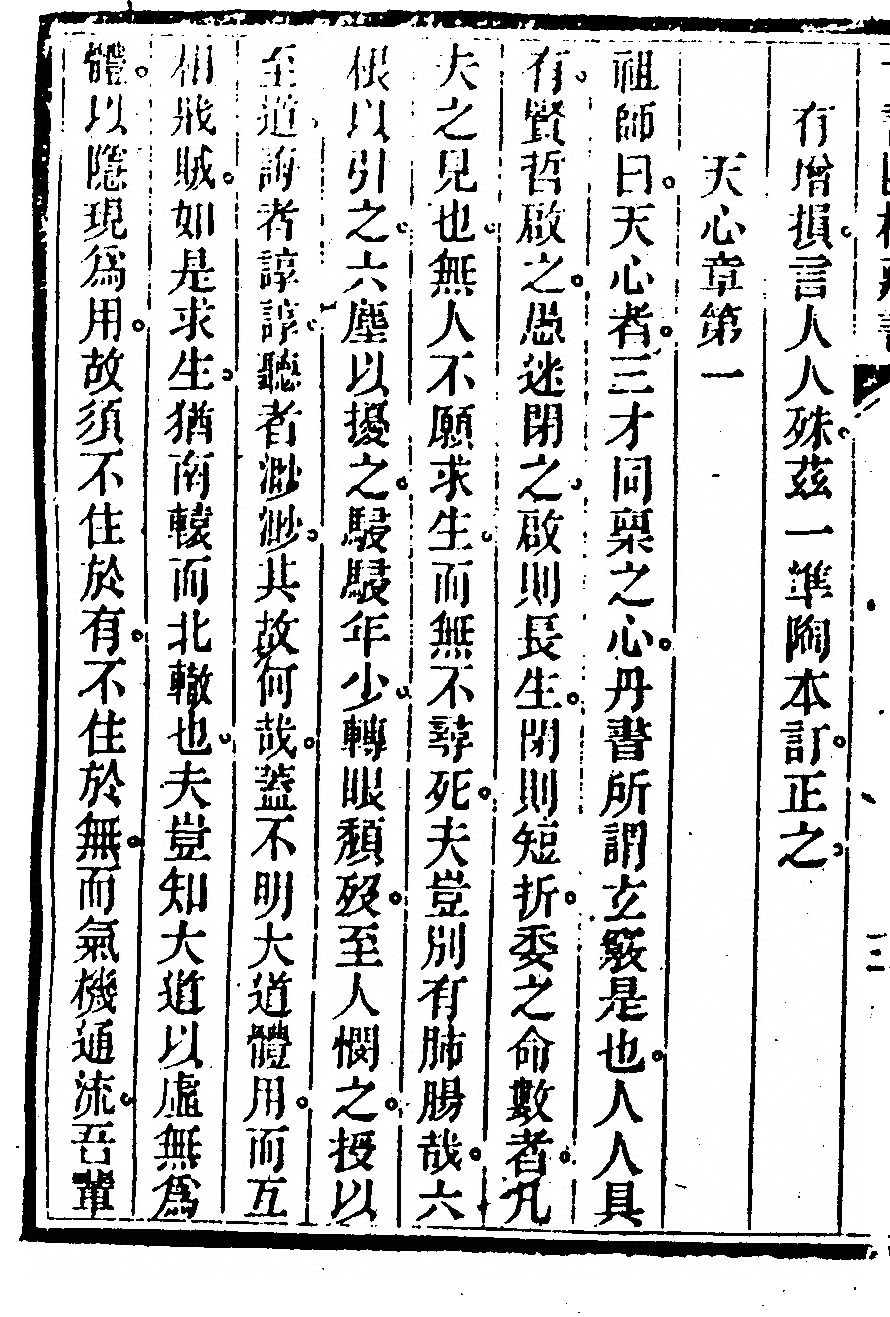 有增損。言人人殊。茲一準陶本訂。正之。
天心章第一
祖師曰。天心者。三才同稟之心。丹書所謂玄竅是也。人人具
有。賢哲啟之。愚迷閉之。啟則長生。閉則短折。委之命數者。凡
夫之見也。無人不願求生。而無不尋死。夫豈別有肺腸哉。六
根以引之。六塵以擾之。駸駸年少。轉眼頹歿。至人憫之。授以
至道。誨者諄諄。聽者渺渺。其故何哉。蓋不明大道體用。而互
相戕賊。如是求生。猶南轅而北轍也。夫豈知大道以虛無爲
體。以隱現爲用。故須不住於有。不住於無。而氣機通流。吾輩
三